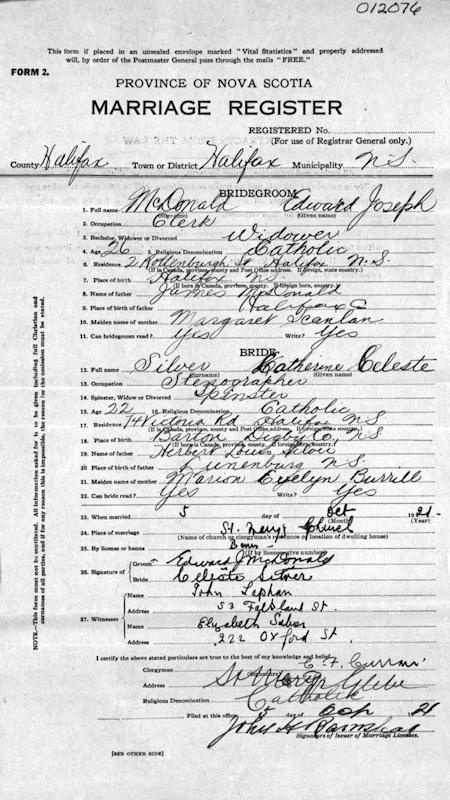 012076
This form if placed in an unsealed envelope marked "Vital Statistics" and properly addressed
will, by order of the Postmaster General pass through the mails "FREE."
FORM 2.
PROVINCE OF NOVA SCOTIA
MARRIAGE REGISTER
REGISTERED No.
(For use of Registrar General only.)
County Halifax Town or District Halifax Municipality N.S.
BRIDEGROOM
1. Full name McDonald Edward Joseph
(Surname) (Given name)
2. Occupation Clerk
3. Bachelor, Widower or Divorced Widower
4. Age 26 5. Religious Denomination Catholic
6. Residence 2 St Halifax N.S.
(If in Canada, province, county and Post Office address. If foreign, state country.)
7. Place of birth Halifax N.S.
(If born in Canada, province, county. If foreign born, country.)
8. Name of father James McDonald
9. Place of birth of father Halifax
10. Maiden name of mother Margaret Scanlan
11. Can bridegroom read? Yes Write? Yes
BRIDE
12. Full name Silver Catherine Celeste
(Surname) (Given name)
13. Occupation Stenographer
14. Spinster, Widow or Divorced Spinster
15. Age 22 16. Religious Denomination Catholic
17. Residence 74 Victoria Rd Halifax N.S.
(If in Canada, province, county and Post Office address. If foreign, state country.)
18. Place of birth Barton Digby Co. N.S.
(If born in Canada, province, county. If foreign born, country.)
19. Name of father Herbert Louis Silver
20. Place of birth of father Lunenburg N.S.
21. Maiden name of mother Marion Evelyn Burrill
22. Can bride read? Yes Write? Yes
23. When married 5 day of Oct 1921
(Month) (Year)
24. Place of marriage St. Mary's Church
(Name of church or clergyman's residence or location of dwelling house)
25. By license or banns Banns
(If by license give number)
26. Signature of Groom Edward J McDonald
Bride Celeste Silver
27. Witnesses
Name John Laphan
Address 53 Falkland St.
Name Elizabeth
Address 222 Oxford St.
I certify the above stated particulars are true to the best of my knowledge and belief.
Clergyman C. F. Curran
(Signature)
Address St Mary's Glebe
Religious Denomination Catholic
Filed at this office day of 21
John A
Signature of Issuer of Marriage Licenses.
[SEE OTHER SIDE]
NOTE.—This form must not be mutilated. All information asked for is to be given including full Christian and
surnames of all parties, and if for any reason this is impossible, the reason for the omission must be stated.